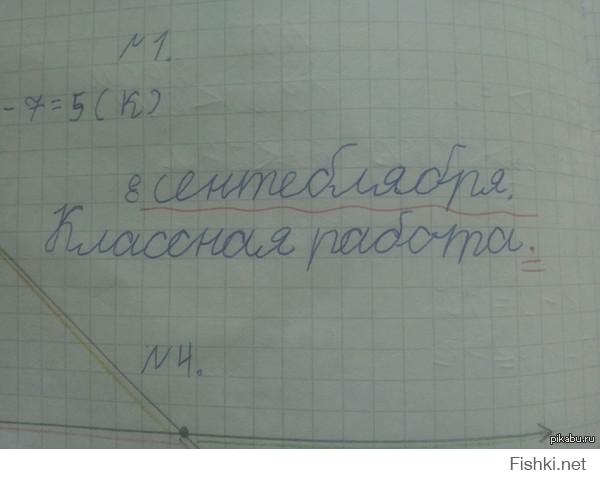 №1.
- 7 = 5 ( К )
8 сентеблября.
Классная работа.
№4.
pikabu.ru
Fishki.net